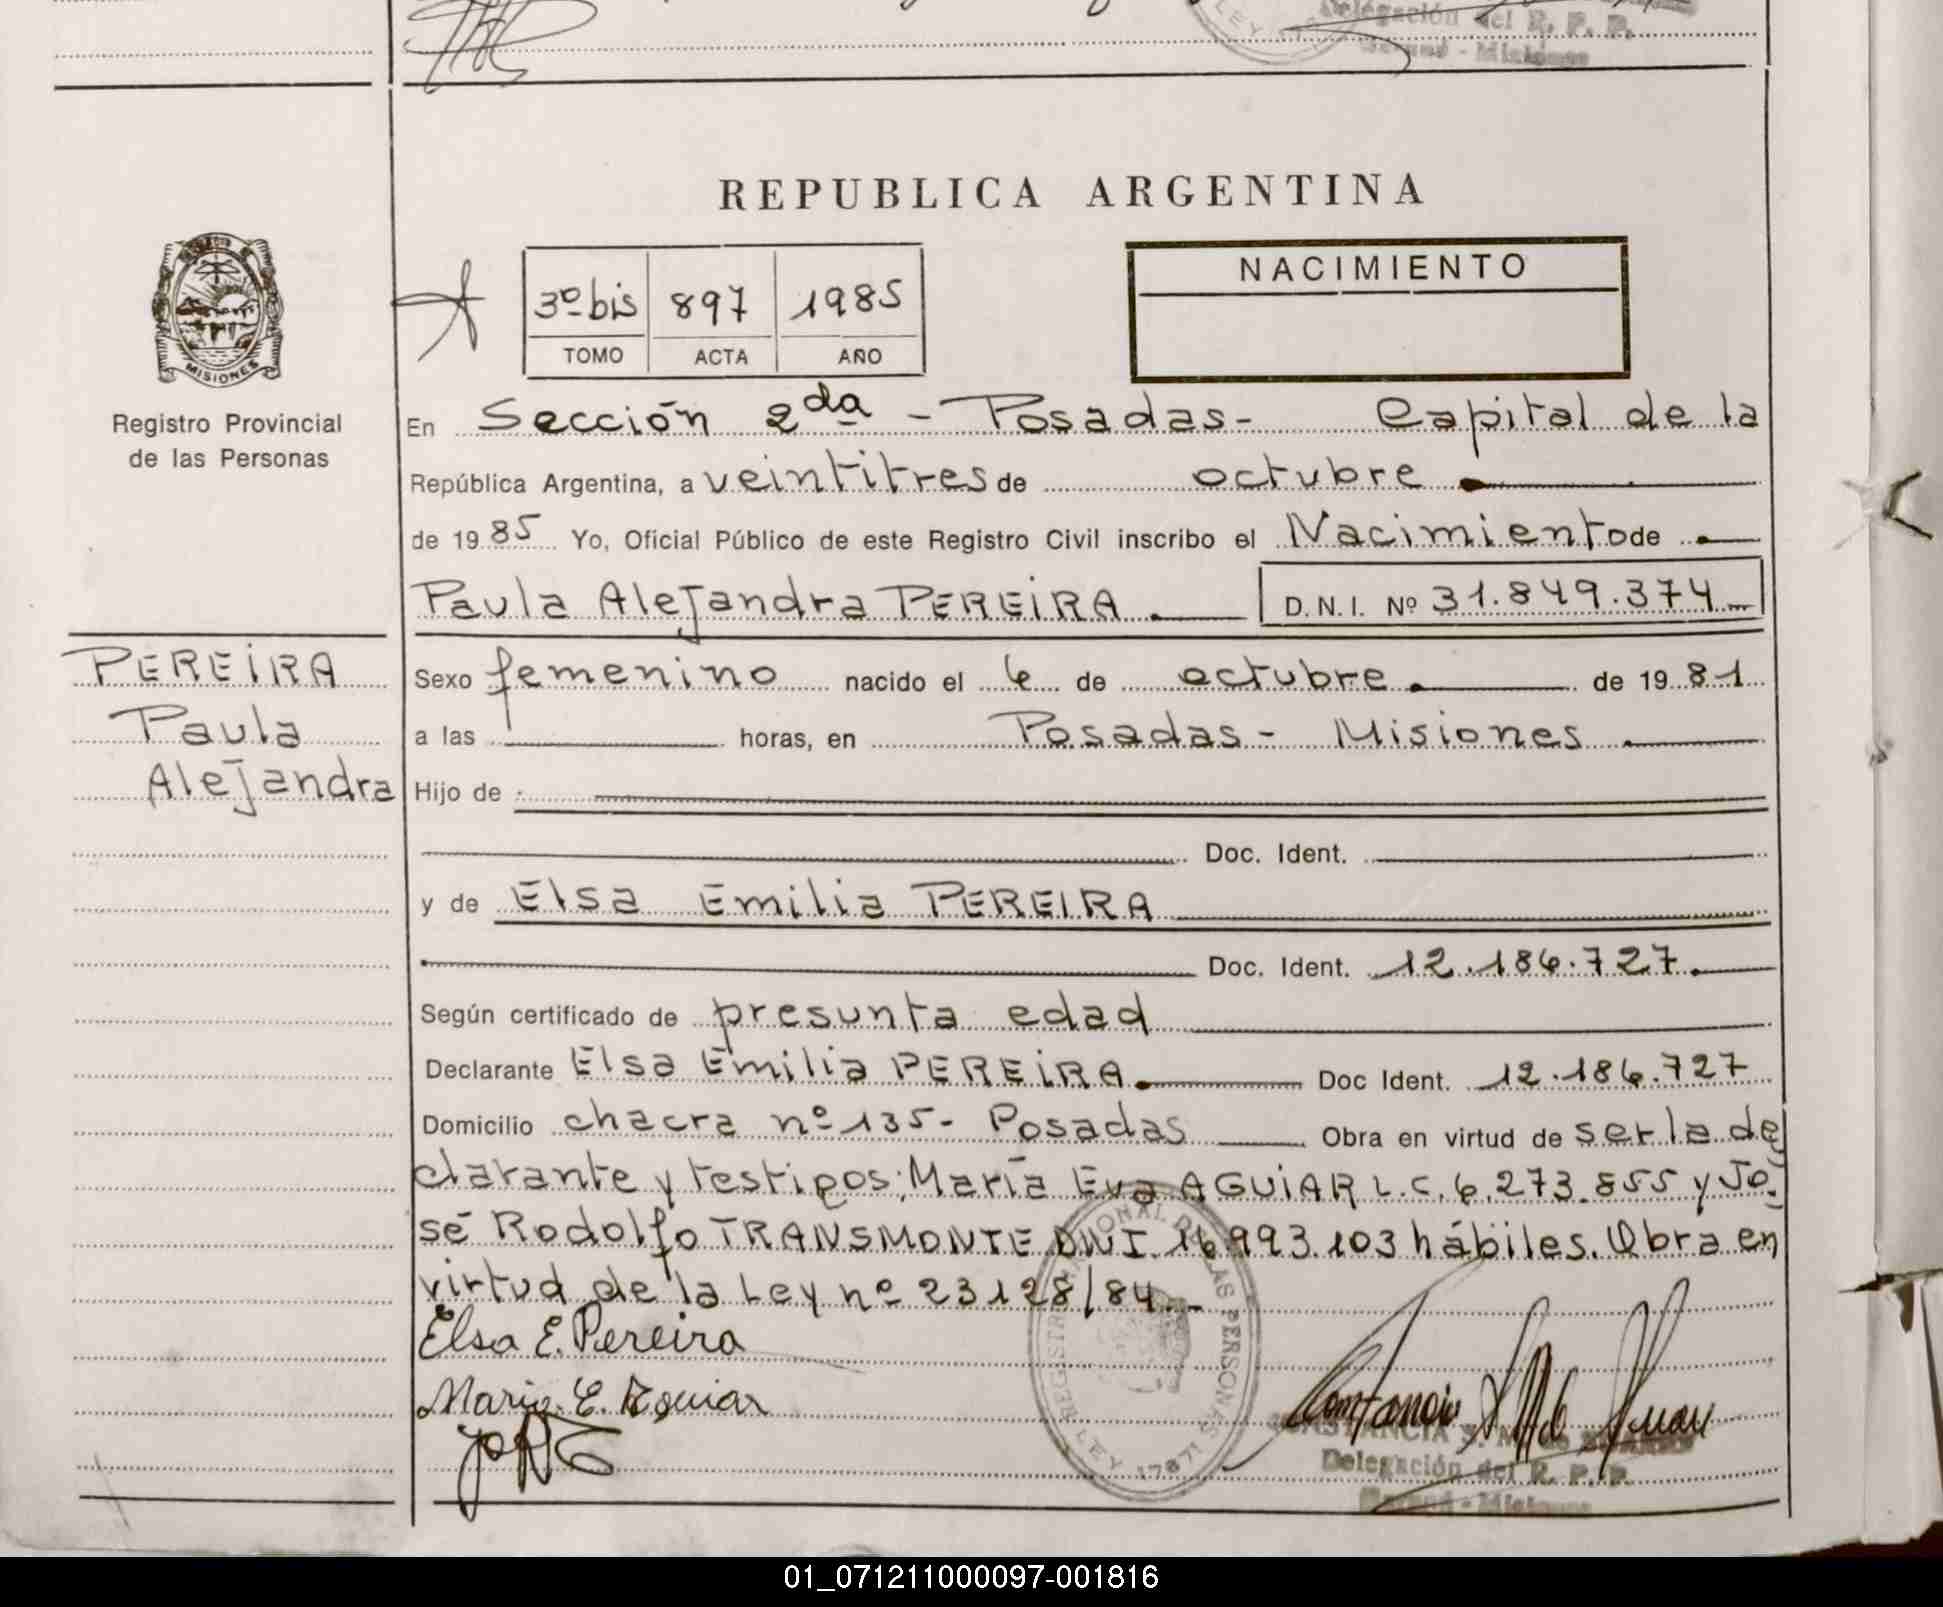 LEY
Delegación del R. P. P.
- Misiones
REPUBLICA ARGENTINA
MISIONES
Registro Provincial
de las Personas
3º bis 897 1985
TOMO ACTA AÑO
NACIMIENTO
En Sección 2da - Posadas - Capital de la
República Argentina, a veintitres de octubre
de 1985 Yo, Oficial Público de este Registro Civil inscribo el Nacimiento de
Paula Alejandra PEREIRA D.N.I. Nº 31.849.374
PEREIRA
Paula
Alejandra
Sexo femenino nacido el 6 de octubre de 1981
a las horas, en Posadas - Misiones
Hijo de
Doc. Ident.
y de Elsa Emilia PEREIRA
Doc. Ident. 12.186.727.
Según certificado de presunta edad
Declarante Elsa Emilia PEREIRA. Doc Ident. 12.186.727
Domicilio chacra nº 135- Posadas Obra en virtud de ser la de
clarante y testigos: María Eva AGUIAR L.C. 6.273.855 y Jo-
sé Rodolfo TRANSMONTE DNI. 16.993.103 hábiles. Obra en
virtud de la Ley nº 23128/84.-
Elsa E. Pereira
Maria E. Aguiar
REGISTRO NACIONAL DE LAS PERSONAS
LEY 17671
Delegación del R. P. P.
- Misiones
01_071211000097-001816